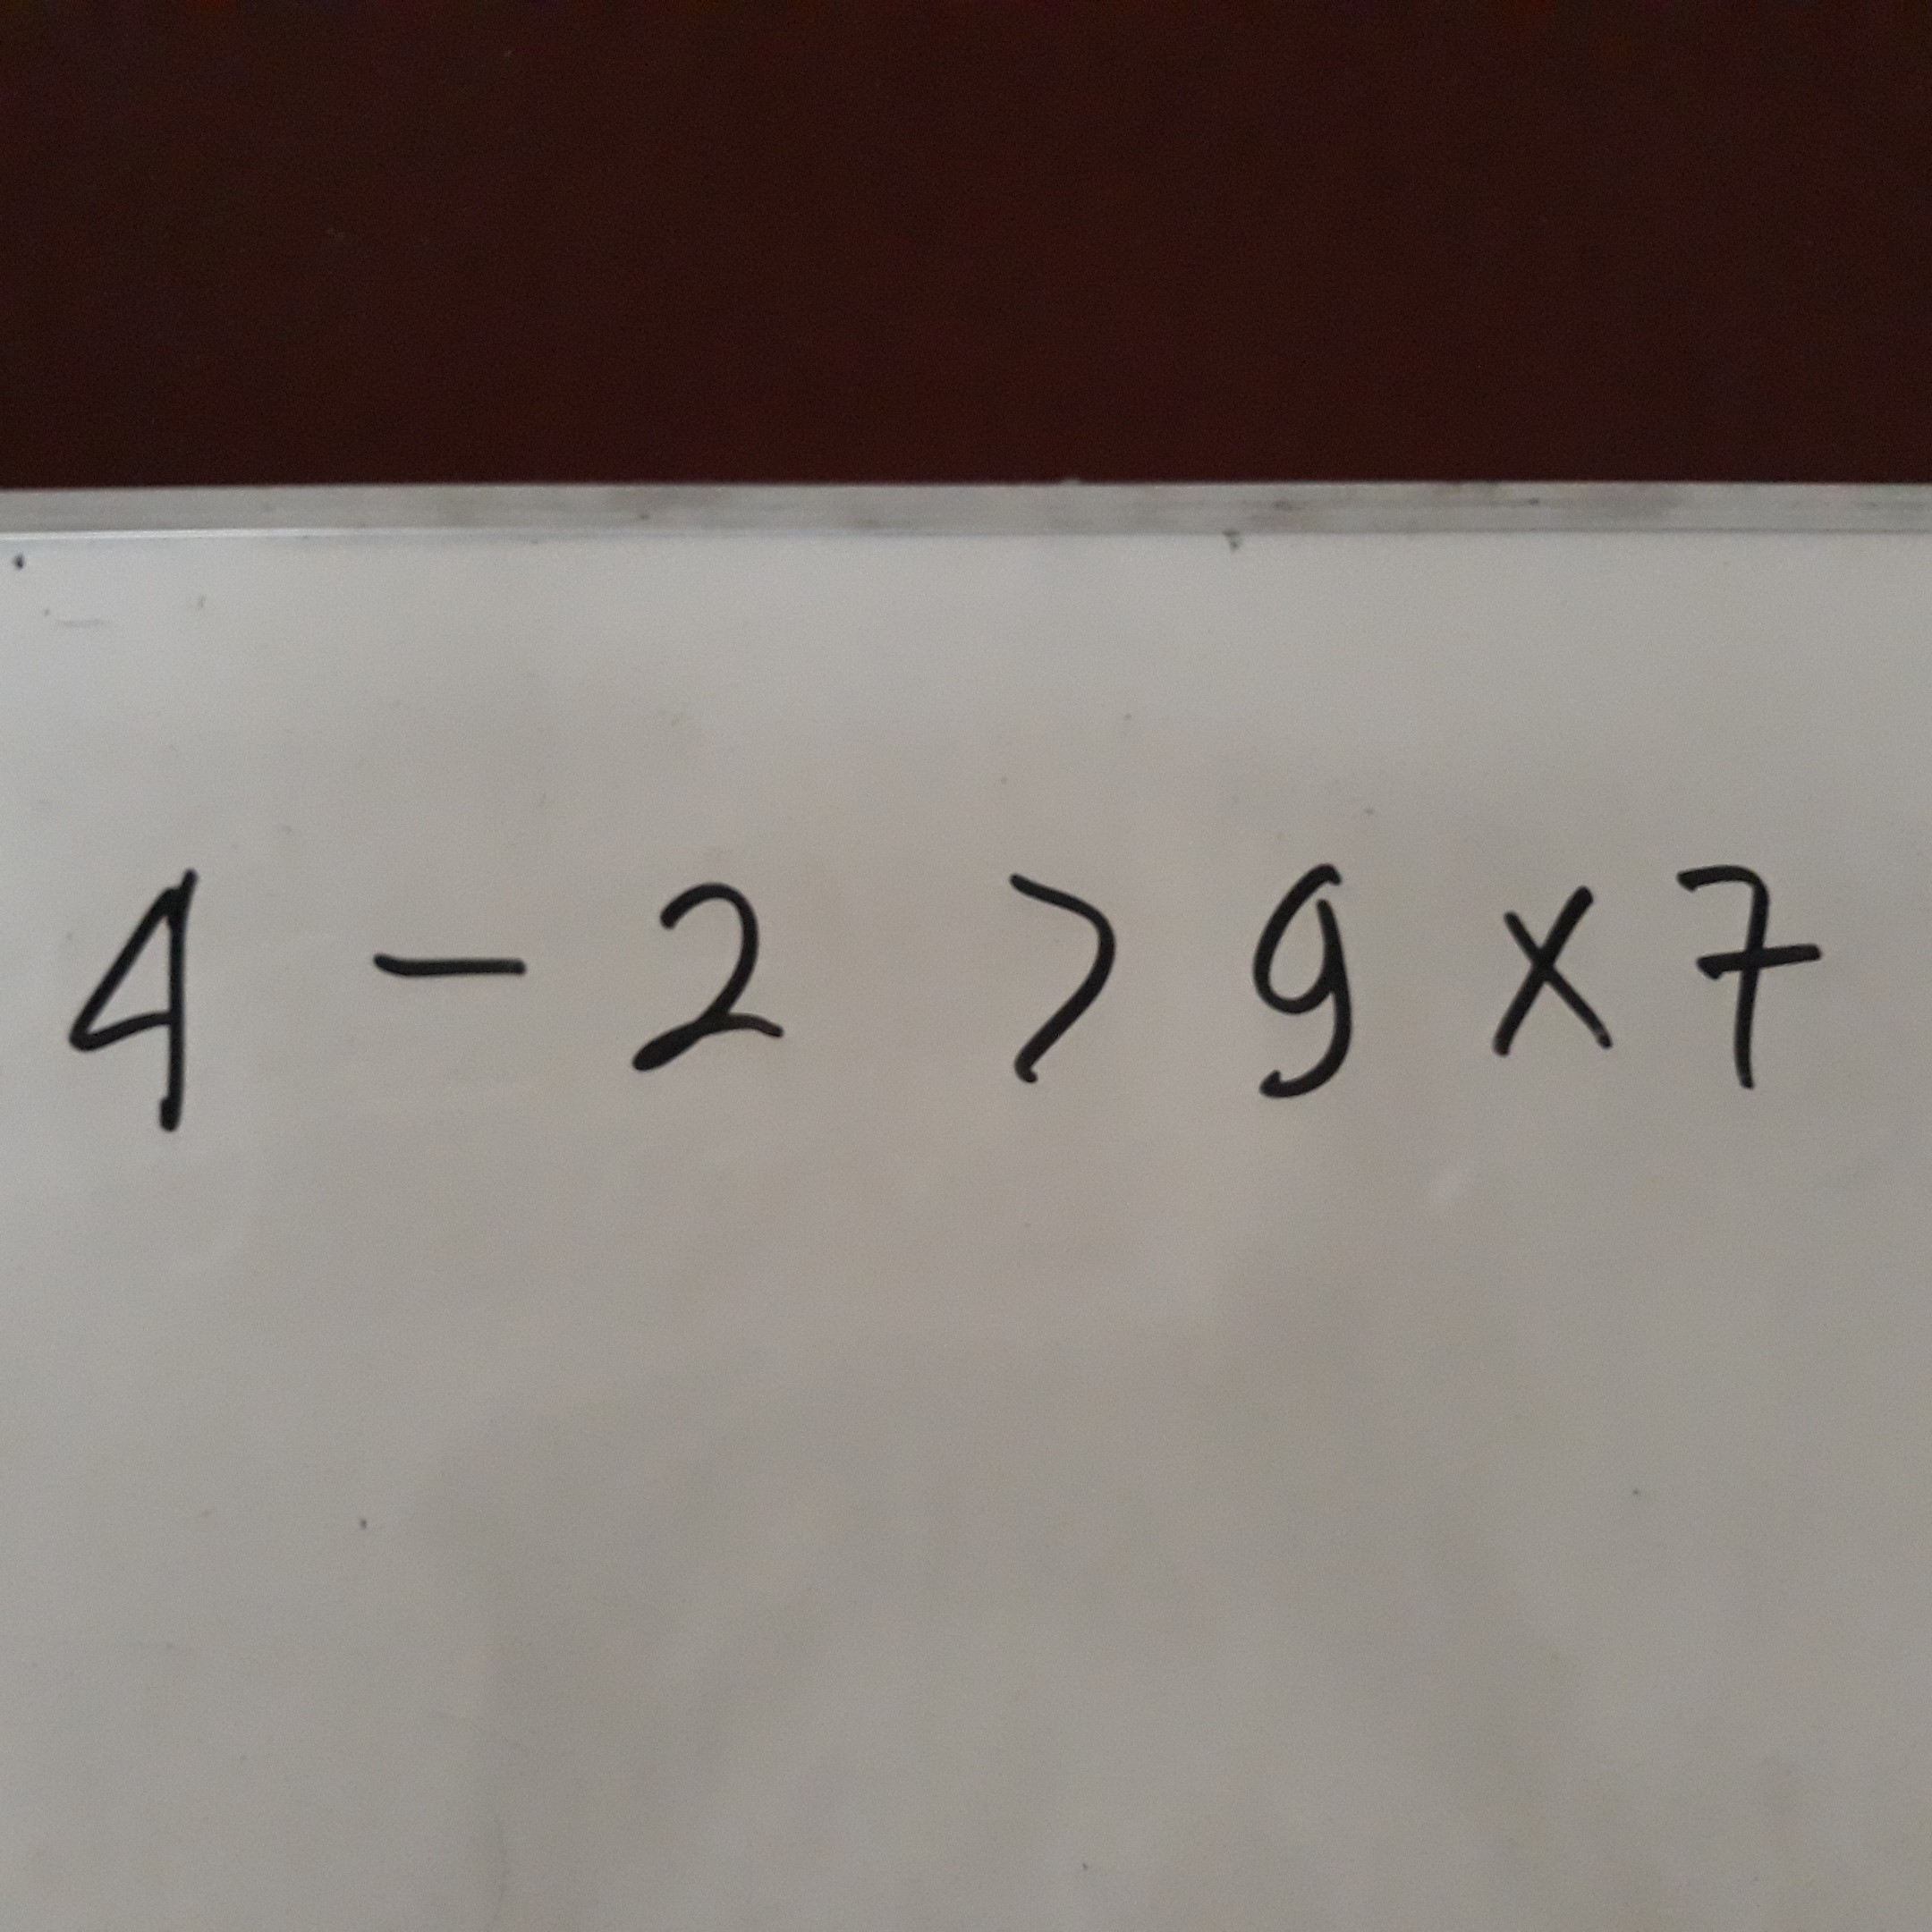 4 - 2 > 9 x 7